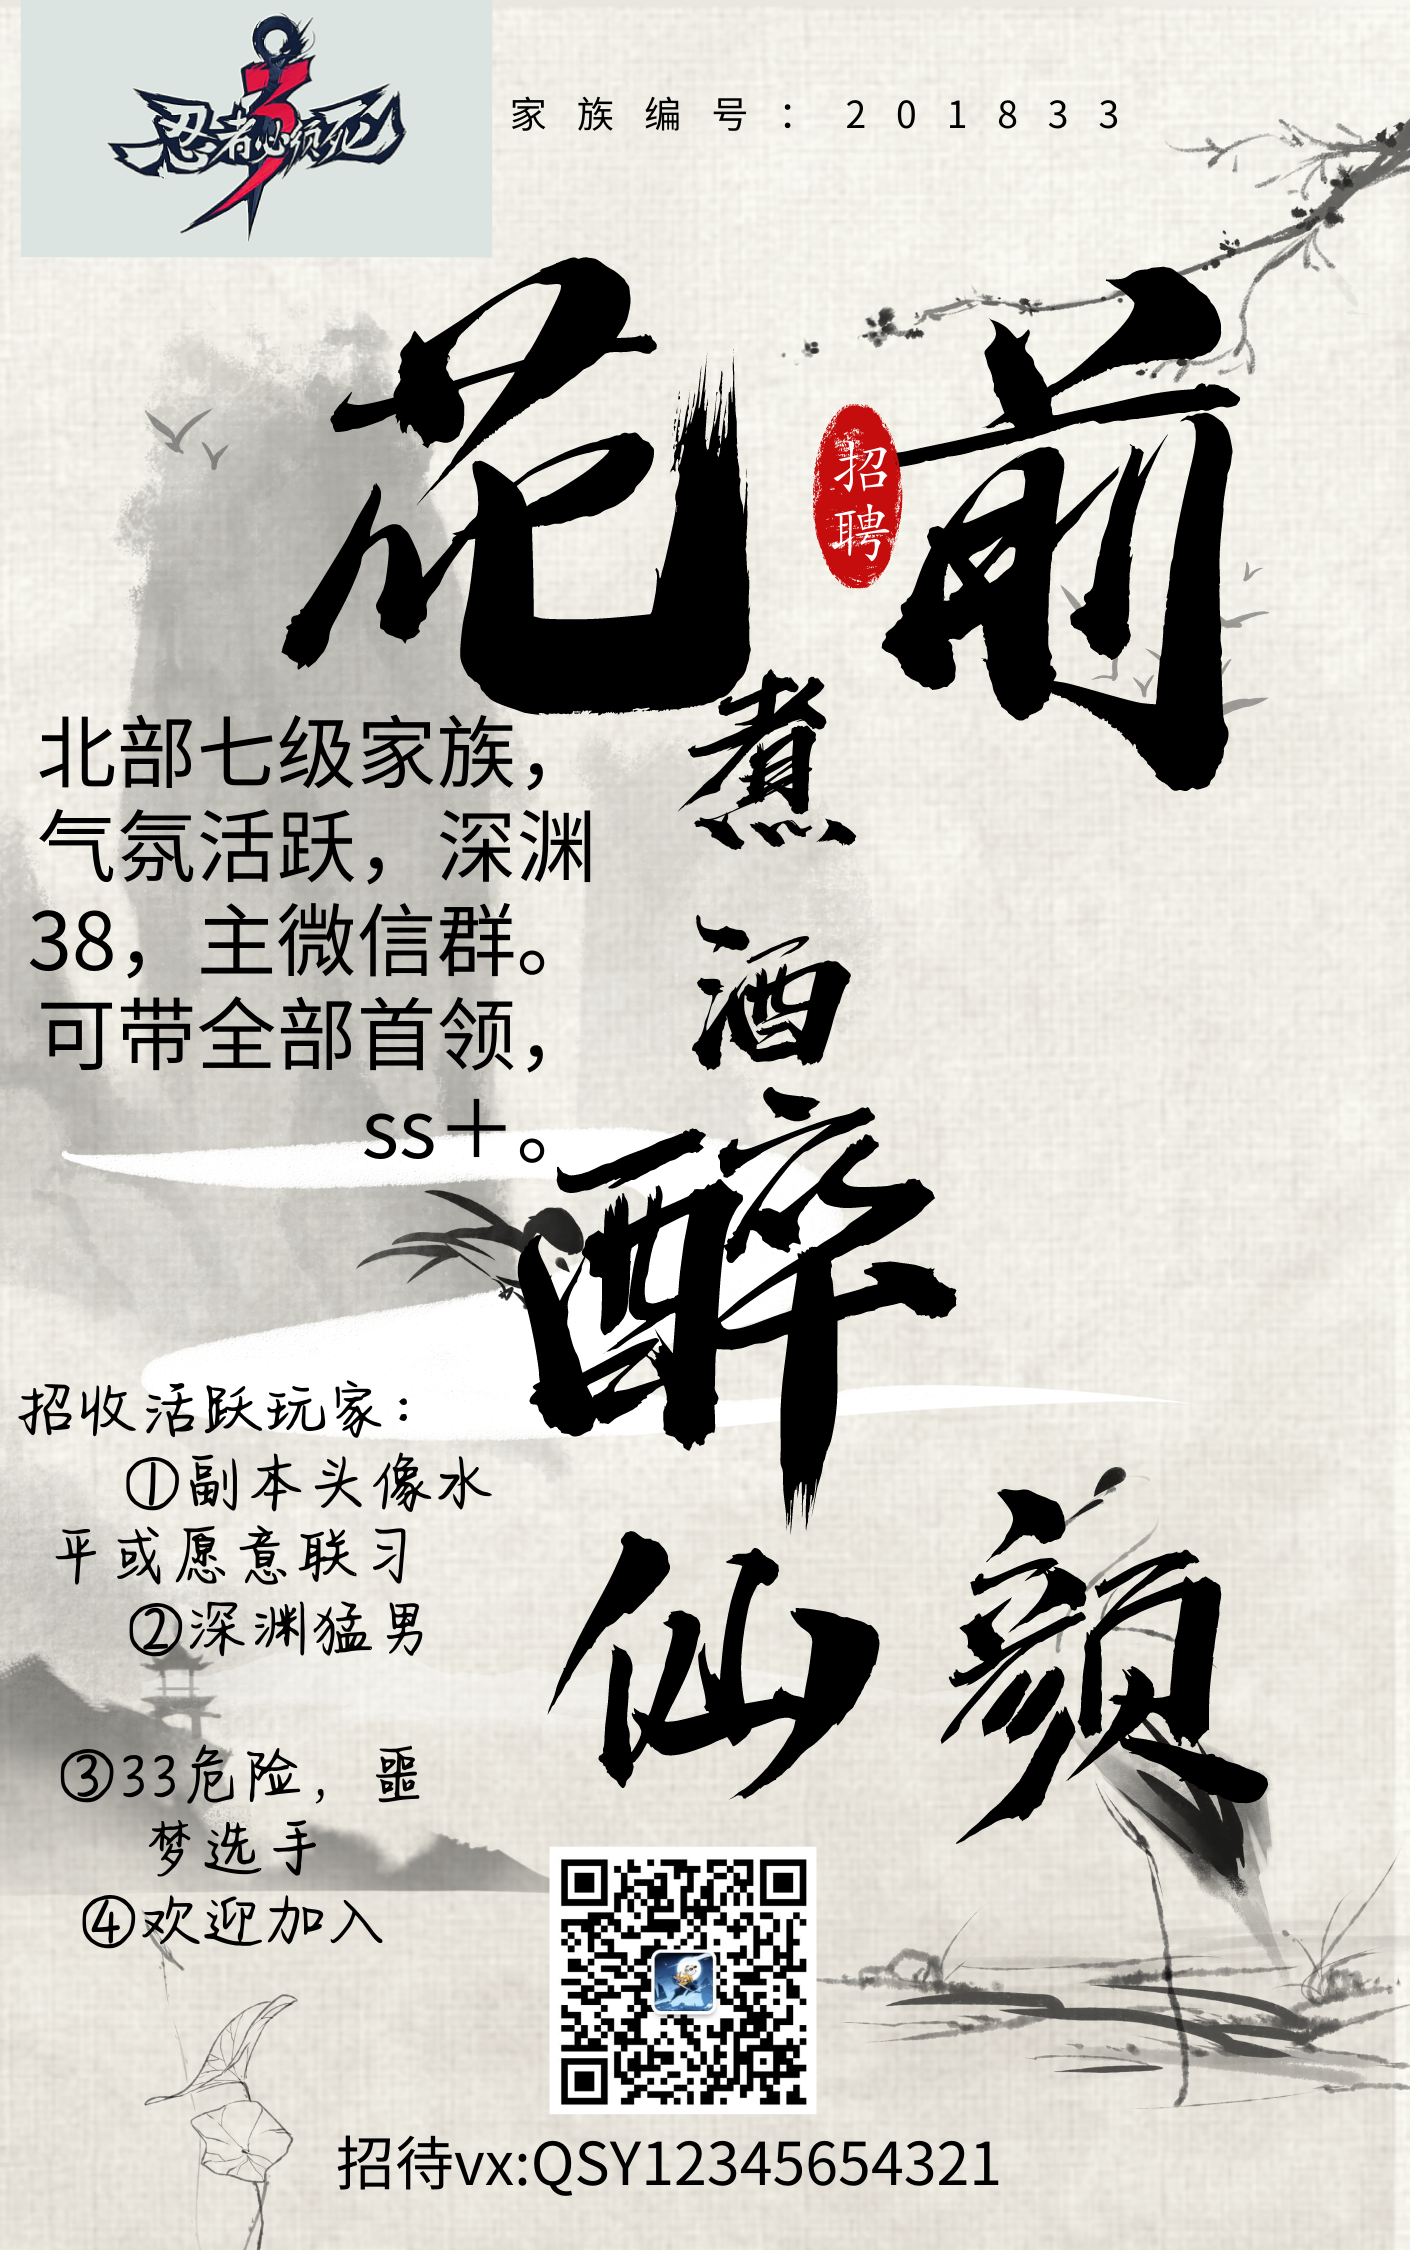 忍者必须死3
家族编号：201833
花前
招聘
煮
酒
醉
仙颜
北部七级家族，
气氛活跃，深渊
38，主微信群。
可带全部首领，
ss＋。
招收活跃玩家：
①副本头像水
平或愿意联习
②深渊猛男
③33危险，噩
梦选手
④欢迎加入
招待vx:QSY12345654321